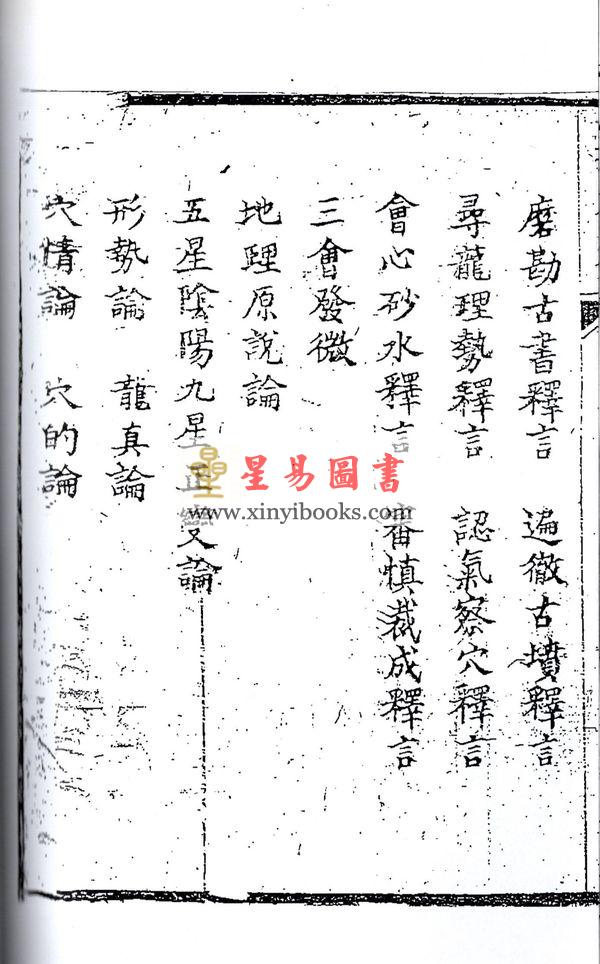 磨勘古書釋言　遍徹古墳釋言
尋龍理勢釋言　認氣察穴釋言
會心砂水釋言　審慎裁成釋言
三會發微
地理原說論
五星陰陽九星正變論
形勢論　龍真論
穴情論　穴的論
星易圖書
www.xinyibooks.com